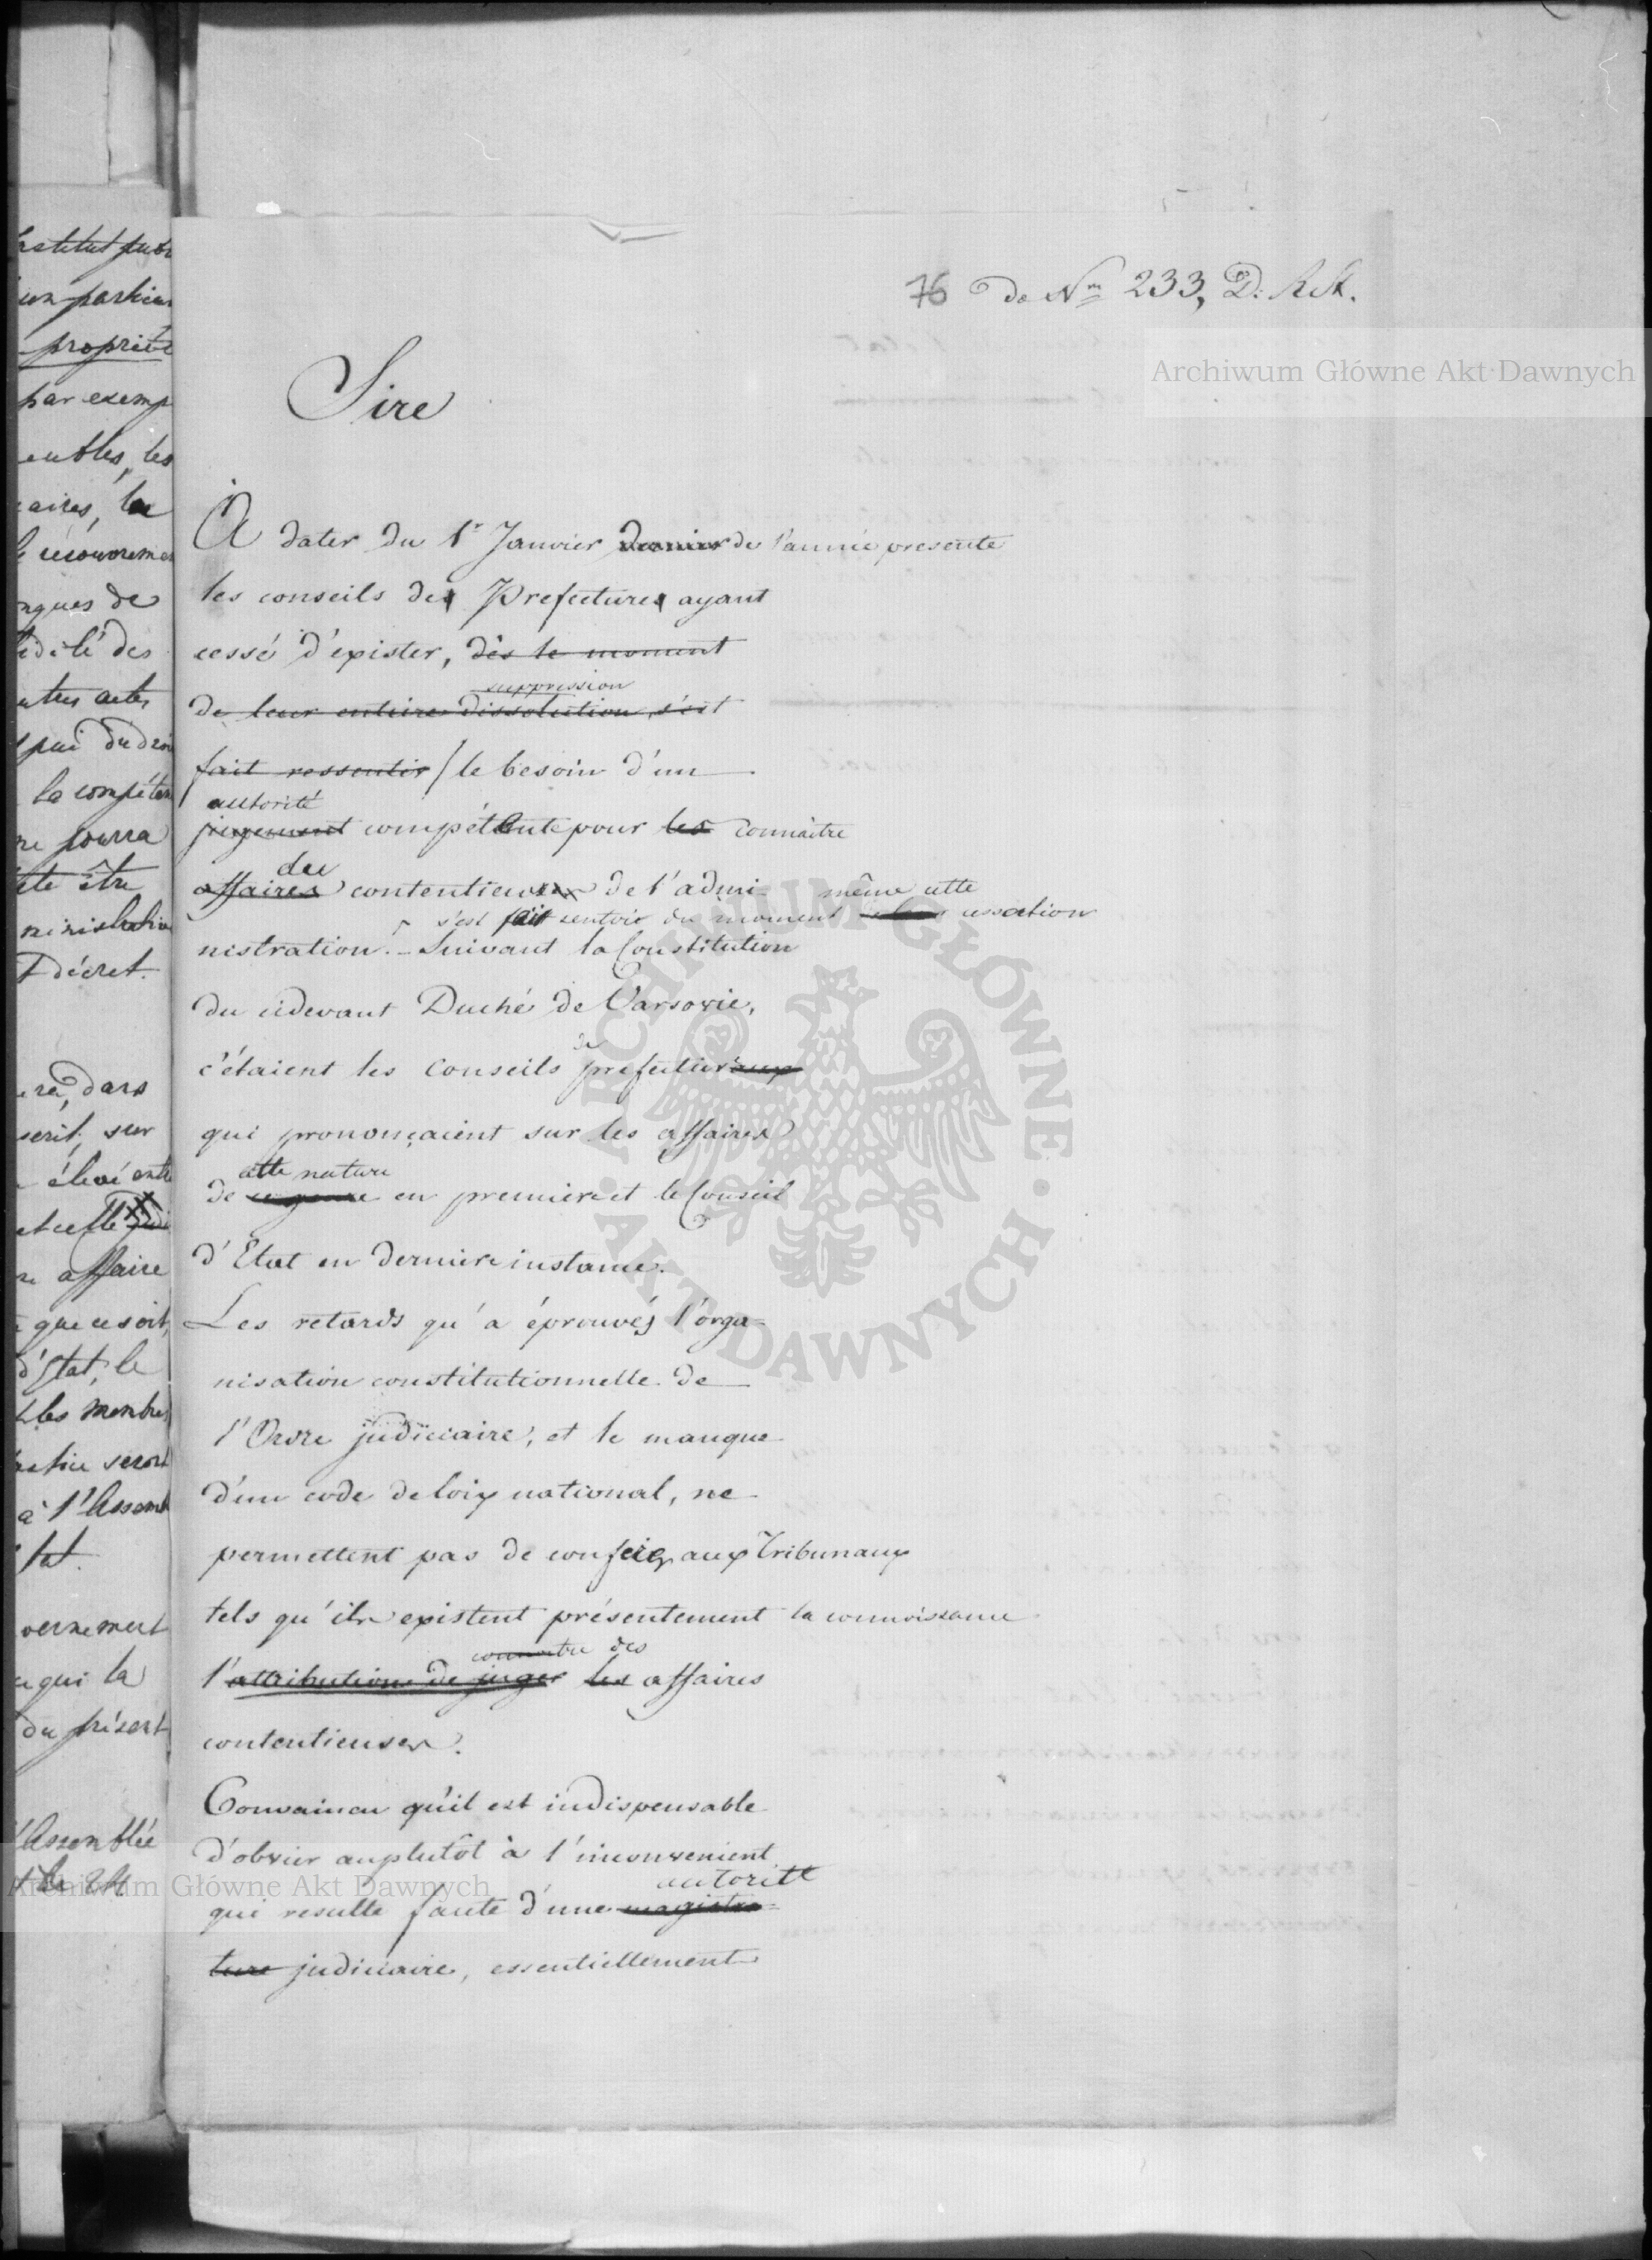 76 do Nru 233, D. R. St.
Archiwum Główne Akt Dawnych
Sire
À dater du 1r Janvier dernier de l'année presente
les conseils des Prefectures ayant
cessé d'exister, dès le moment
suppression
de leur entiere dissolution, s'est
fait ressentir / le besoin d'un
autorité
jugement compétente pour les connaître
du
affaires contentieuses de l'admi- même cette
s'est fait sentir du moment cessation
nistration. - Suivant la Constitution
du cidevant Duché de Varsovie,
de
c'étaient les Conseils prefecturaux
qui prononçaient sur les affaires
cette nature
de ce genre en premiere et le Conseil
d'Etat en derniere instance.
Les retards qu'a éprouvés l'orga-
nisation constitutionnelle de
l'Ordre judiciaire, et le manque
d'un code de loix national, ne
permettent pas de conferer aux Tribunaux
tels qu'ils existent présentement la connoissance
connaitre des
l'attribution de juger les affaires
contentieuses.
Convaincu qu'il est indispensable
d'obvier auplutôt à l'inconvenient
autorité
qui resulte faute d'une magistra-
ture judiciaire, essentiellement
ARCHIWUM GŁÓWNE AKT DAWNYCH
institut pub
un particu
propriété
par exemp
eubles, les
aires, la
le recouvremen
ngues de
idélé des
utres actes
la compéten
ne pourra
ete être
ministrative
décret.
dans
serit, sur
élevé entre
et celle
affaire
que ce soit,
d'Etat, le
les membres
seront
à l'Assemb
tat.
vernement
qui la
du présent
l'Assemblée
Archiwum Główne Akt Dawnych